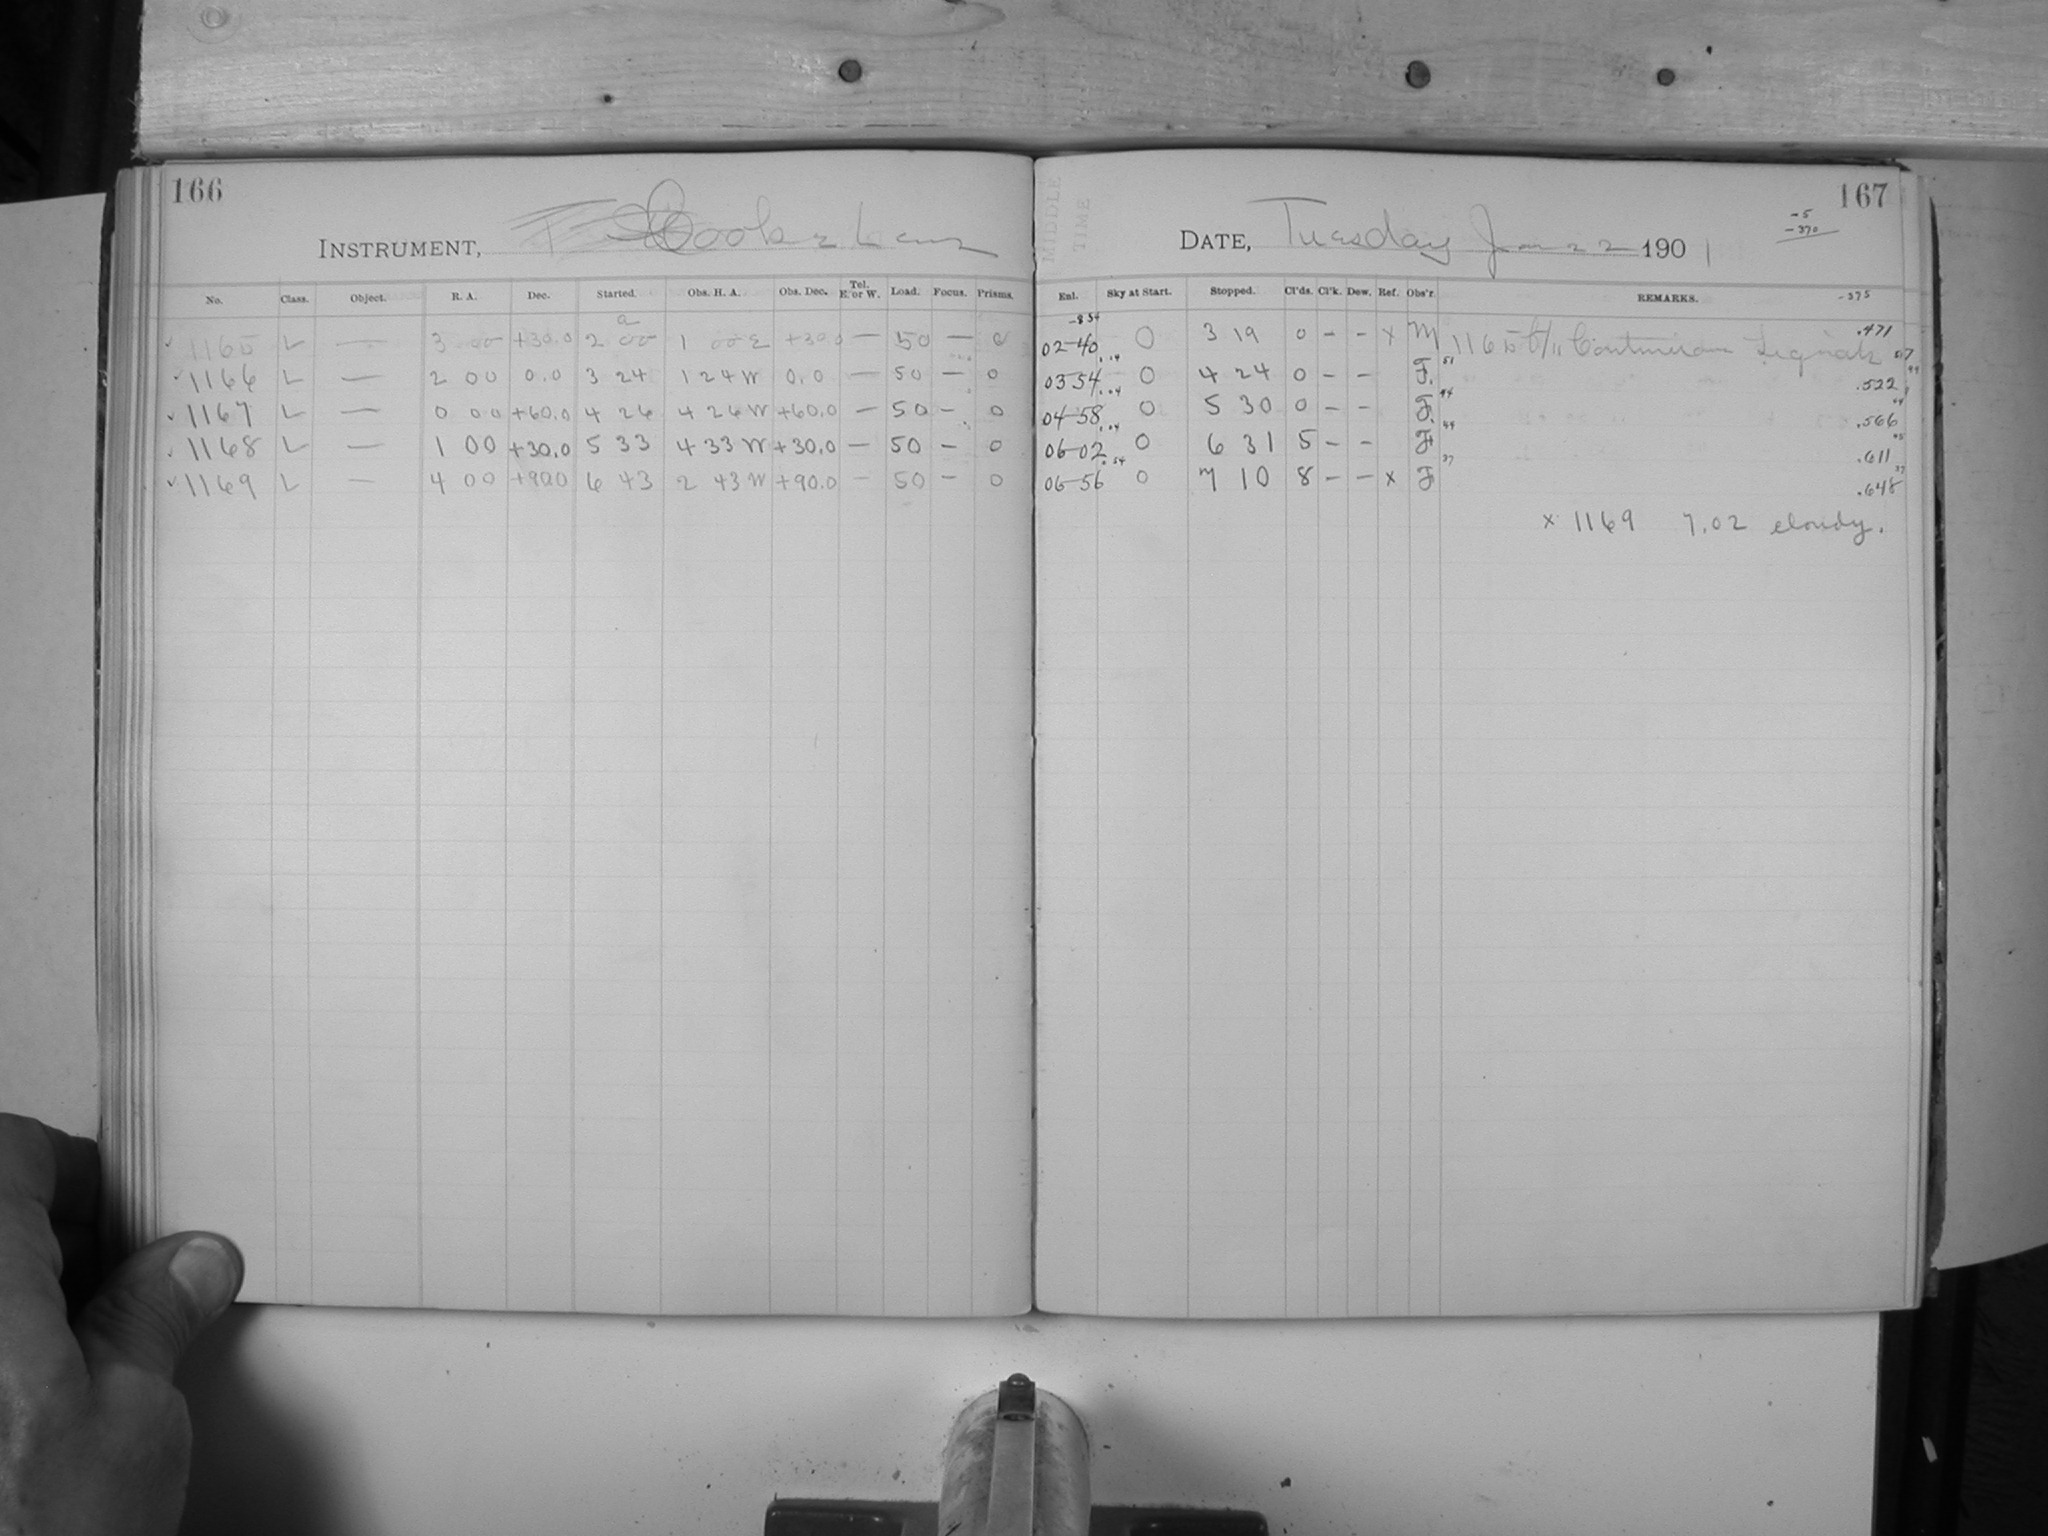 166
INSTRUMENT, Cooke Lens
No. Class. Object. R. A. Dec. Started. Obs. H. A. Obs. Dec. Tel. E. or W. Load. Focus. Prisms.
a
1165 L — 3 00 +30.0 2 00 1 00 E +30.0 — 50 — 0
1166 L — 2 00 0.0 3 24 1 24 W 0.0 — 50 — 0
1167 L — 0 00 +60.0 4 26 4 26 W +60.0 — 50 — 0
1168 L — 1 00 +30.0 5 33 4 33 W +30.0 — 50 — 0
1169 L — 4 00 +90.0 6 43 2 43 W +90.0 — 50 — 0
MIDDLE TIME
167
-5
-370
DATE, Tuesday Jan 22 1901
Enl. Sky at Start. Stopped. Cl'ds. Cl'k. Dew. Ref. Obs'r. REMARKS. -375
-854
02-40 0 3 19 0 – – x M 1165 Continuous Signals .471
03 54 0 4 24 0 – – F. 51 .522
04-58 0 5 30 0 – – F. 44 .566
06-02 0 6 31 5 – – F 44 .611
06-56 0 7 10 8 – – x F 37 .648
x 1169 7.02 cloudy.